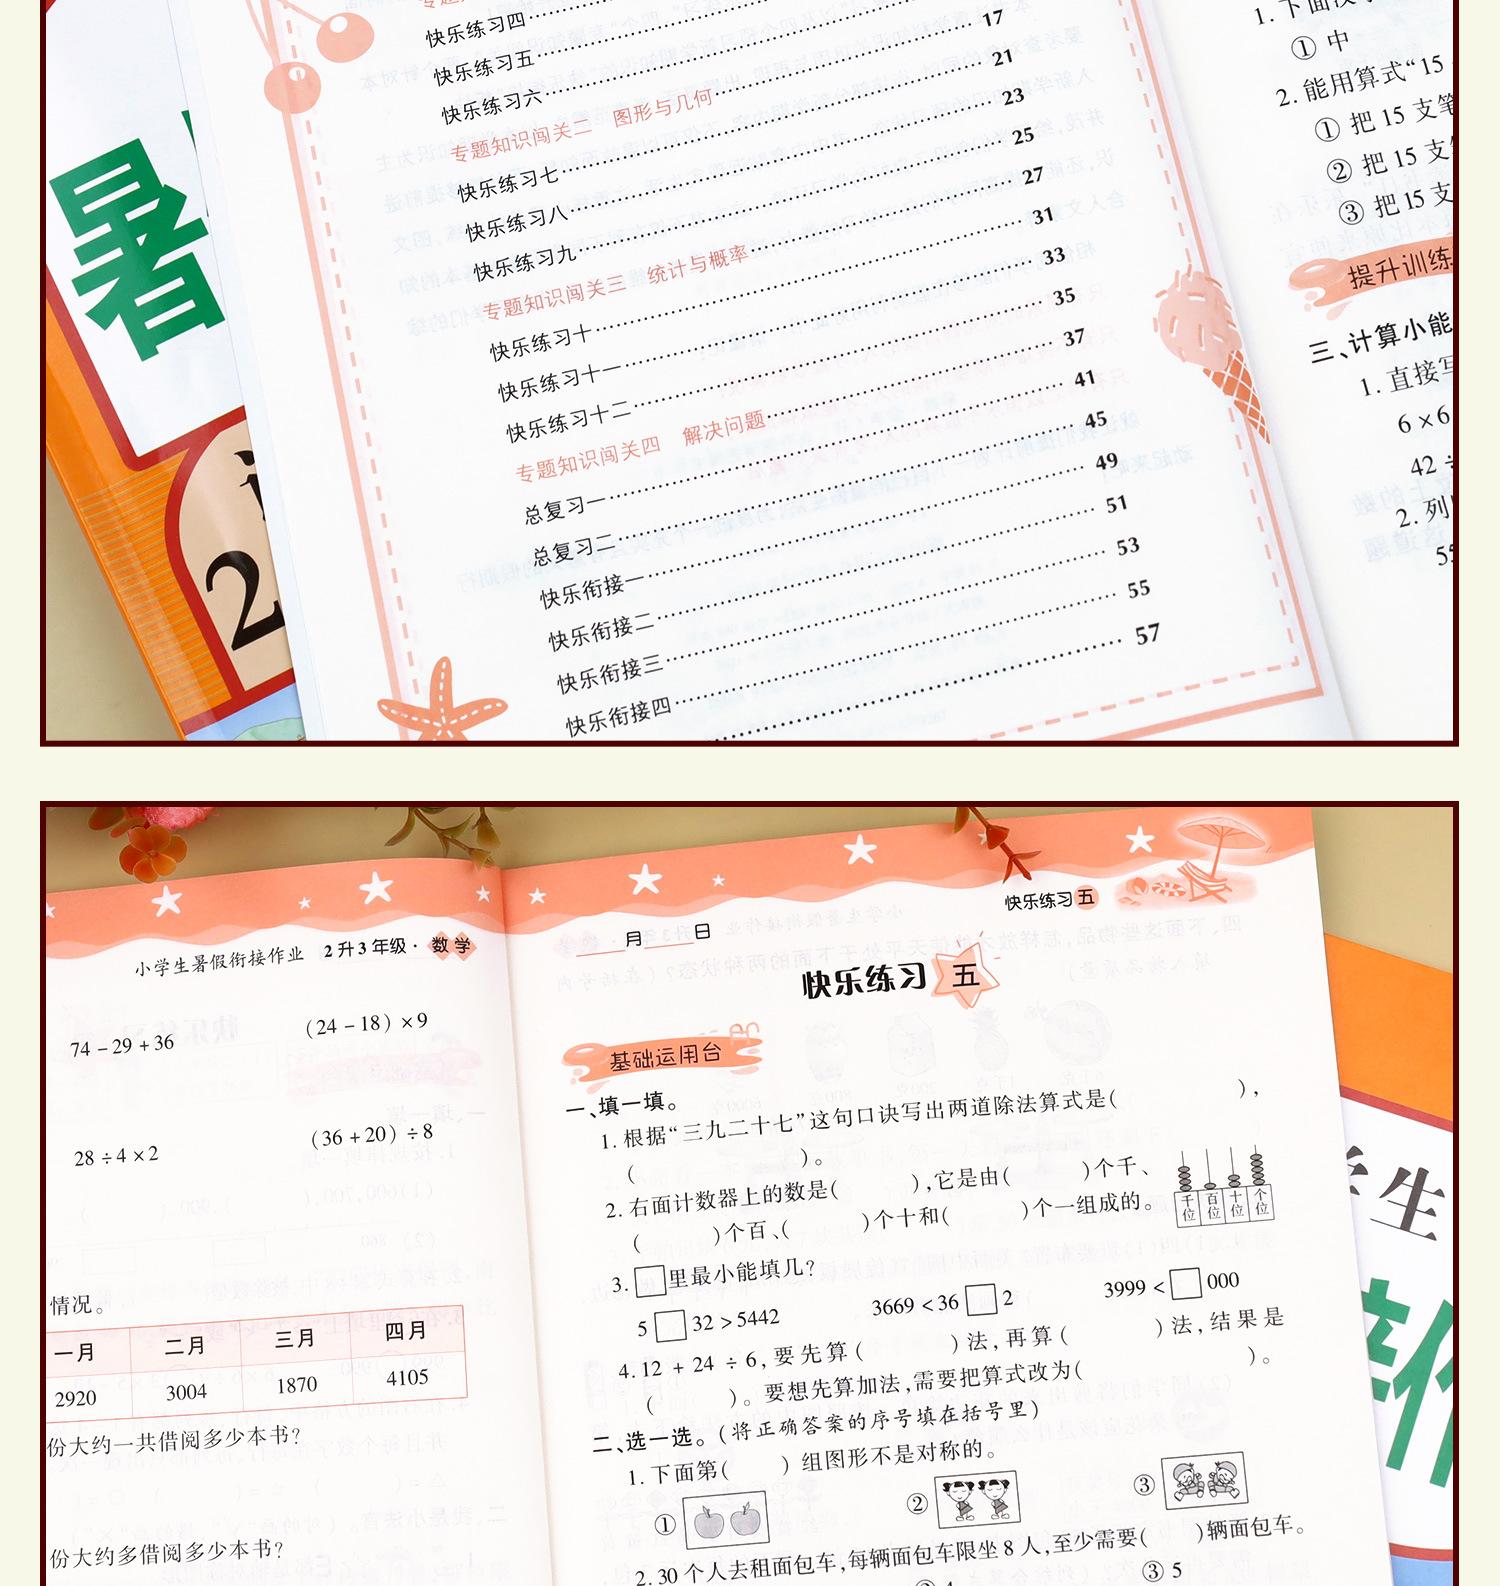 快乐练习四
快乐练习五 17
快乐练习六 21
专题知识闯关二 图形与几何 23
快乐练习七 25
快乐练习八 27
快乐练习九 31
专题知识闯关三 统计与概率 33
快乐练习十 35
快乐练习十一 37
快乐练习十二 41
专题知识闯关四 解决问题 45
总复习一 49
总复习二 51
快乐衔接一 53
快乐衔接二 55
快乐衔接三 57
快乐衔接四
暑
2
① 中
2. 能用算式“15
① 把 15 支笔
② 把 15 支
③ 把 15 支
提升训练
三、计算小能
1. 直接写
6 × 6
42 ÷
2. 列
小学生暑假衔接作业 2升3年级·数学
74 − 29 + 36
(24 − 18) × 9
28 ÷ 4 × 2
(36 + 20) ÷ 8
情况。
一月 二月 三月 四月
2920 3004 1870 4105
份大约一共借阅多少本书?
份大约多借阅多少本书?
快乐练习五
月 日
快乐练习 五
基础运用台
一、填一填。
1. 根据“三九二十七”这句口诀写出两道除法算式是( ),
( )。
2. 右面计数器上的数是( ),它是由( )个千、
( )个百、( )个十和( )个一组成的。
千位 百位 十位 个位
3. □里最小能填几?
5□32 > 5442 3669 < 36□2 3999 < □000
4. 12 + 24 ÷ 6,要先算( )法,再算( )法,结果是
( )。要想先算加法,需要把算式改为( )。
二、选一选。(将正确答案的序号填在括号里)
1. 下面第( )组图形不是对称的。
① ② ③
2. 30 个人去租面包车,每辆面包车限坐 8 人,至少需要( )辆面包车。
③ 5
生